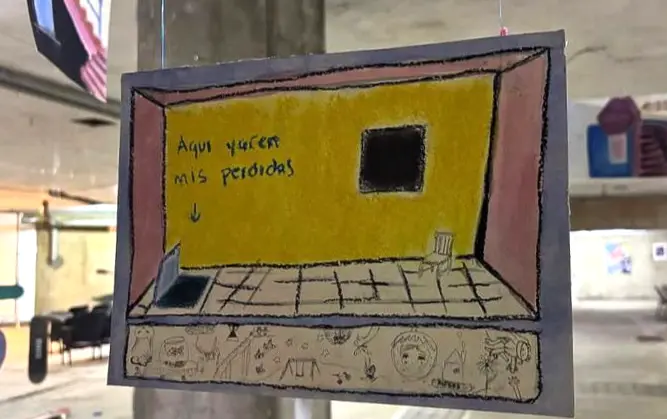 Aqui yacen
mis perdidas